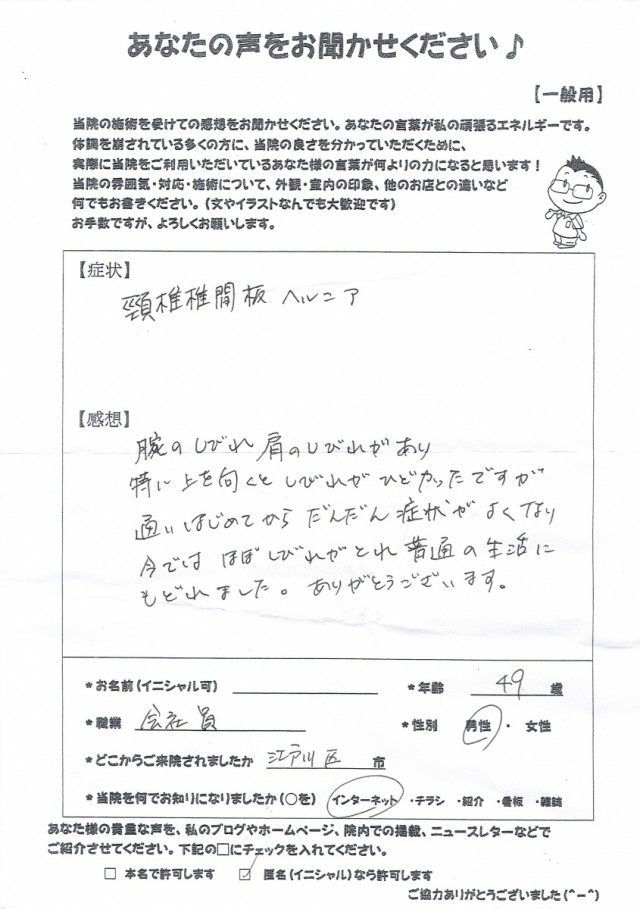 あなたの声をお聞かせください♪
【一般用】
当院の施術を受けての感想をお聞かせください。あなたの言葉が私の頑張るエネルギーです。
体調を崩されている多くの方に、当院の良さを分かっていただくために、
実際に当院をご利用いただいているあなた様の言葉が何よりの力になると思います!
当院の雰囲気・対応・施術について、外観・室内の印象、他のお店との違いなど
何でもお書きください。(文やイラストなんでも大歓迎です)
お手数ですが、よろしくお願いします。
【症状】
頸椎椎間板 ヘルニア
【感想】
腕のしびれ 肩のしびれがあり
特に上を向くと しびれが ひどかったですが
通いはじめてから だんだん 症状が よくなり
今では ほぼしびれがとれ 普通の生活に
もどれました。ありがとうございます。
*お名前(イニシャル可)
*年齢 49 歳
*職業 会社員
*性別 男性 ・ 女性
*どこからご来院されましたか 江戸川区 市
*当院を何でお知りになりましたか(○を) インターネット ・チラシ ・紹介 ・看板 ・雑誌
あなた様の貴重な声を、私のブログやホームページ、院内での掲載、ニュースレターなどで
ご紹介させてください。下記の□にチェックを入れてください。
□ 本名で許可します ☑ 匿名(イニシャル)なら許可します
ご協力ありがとうございました(^-^)